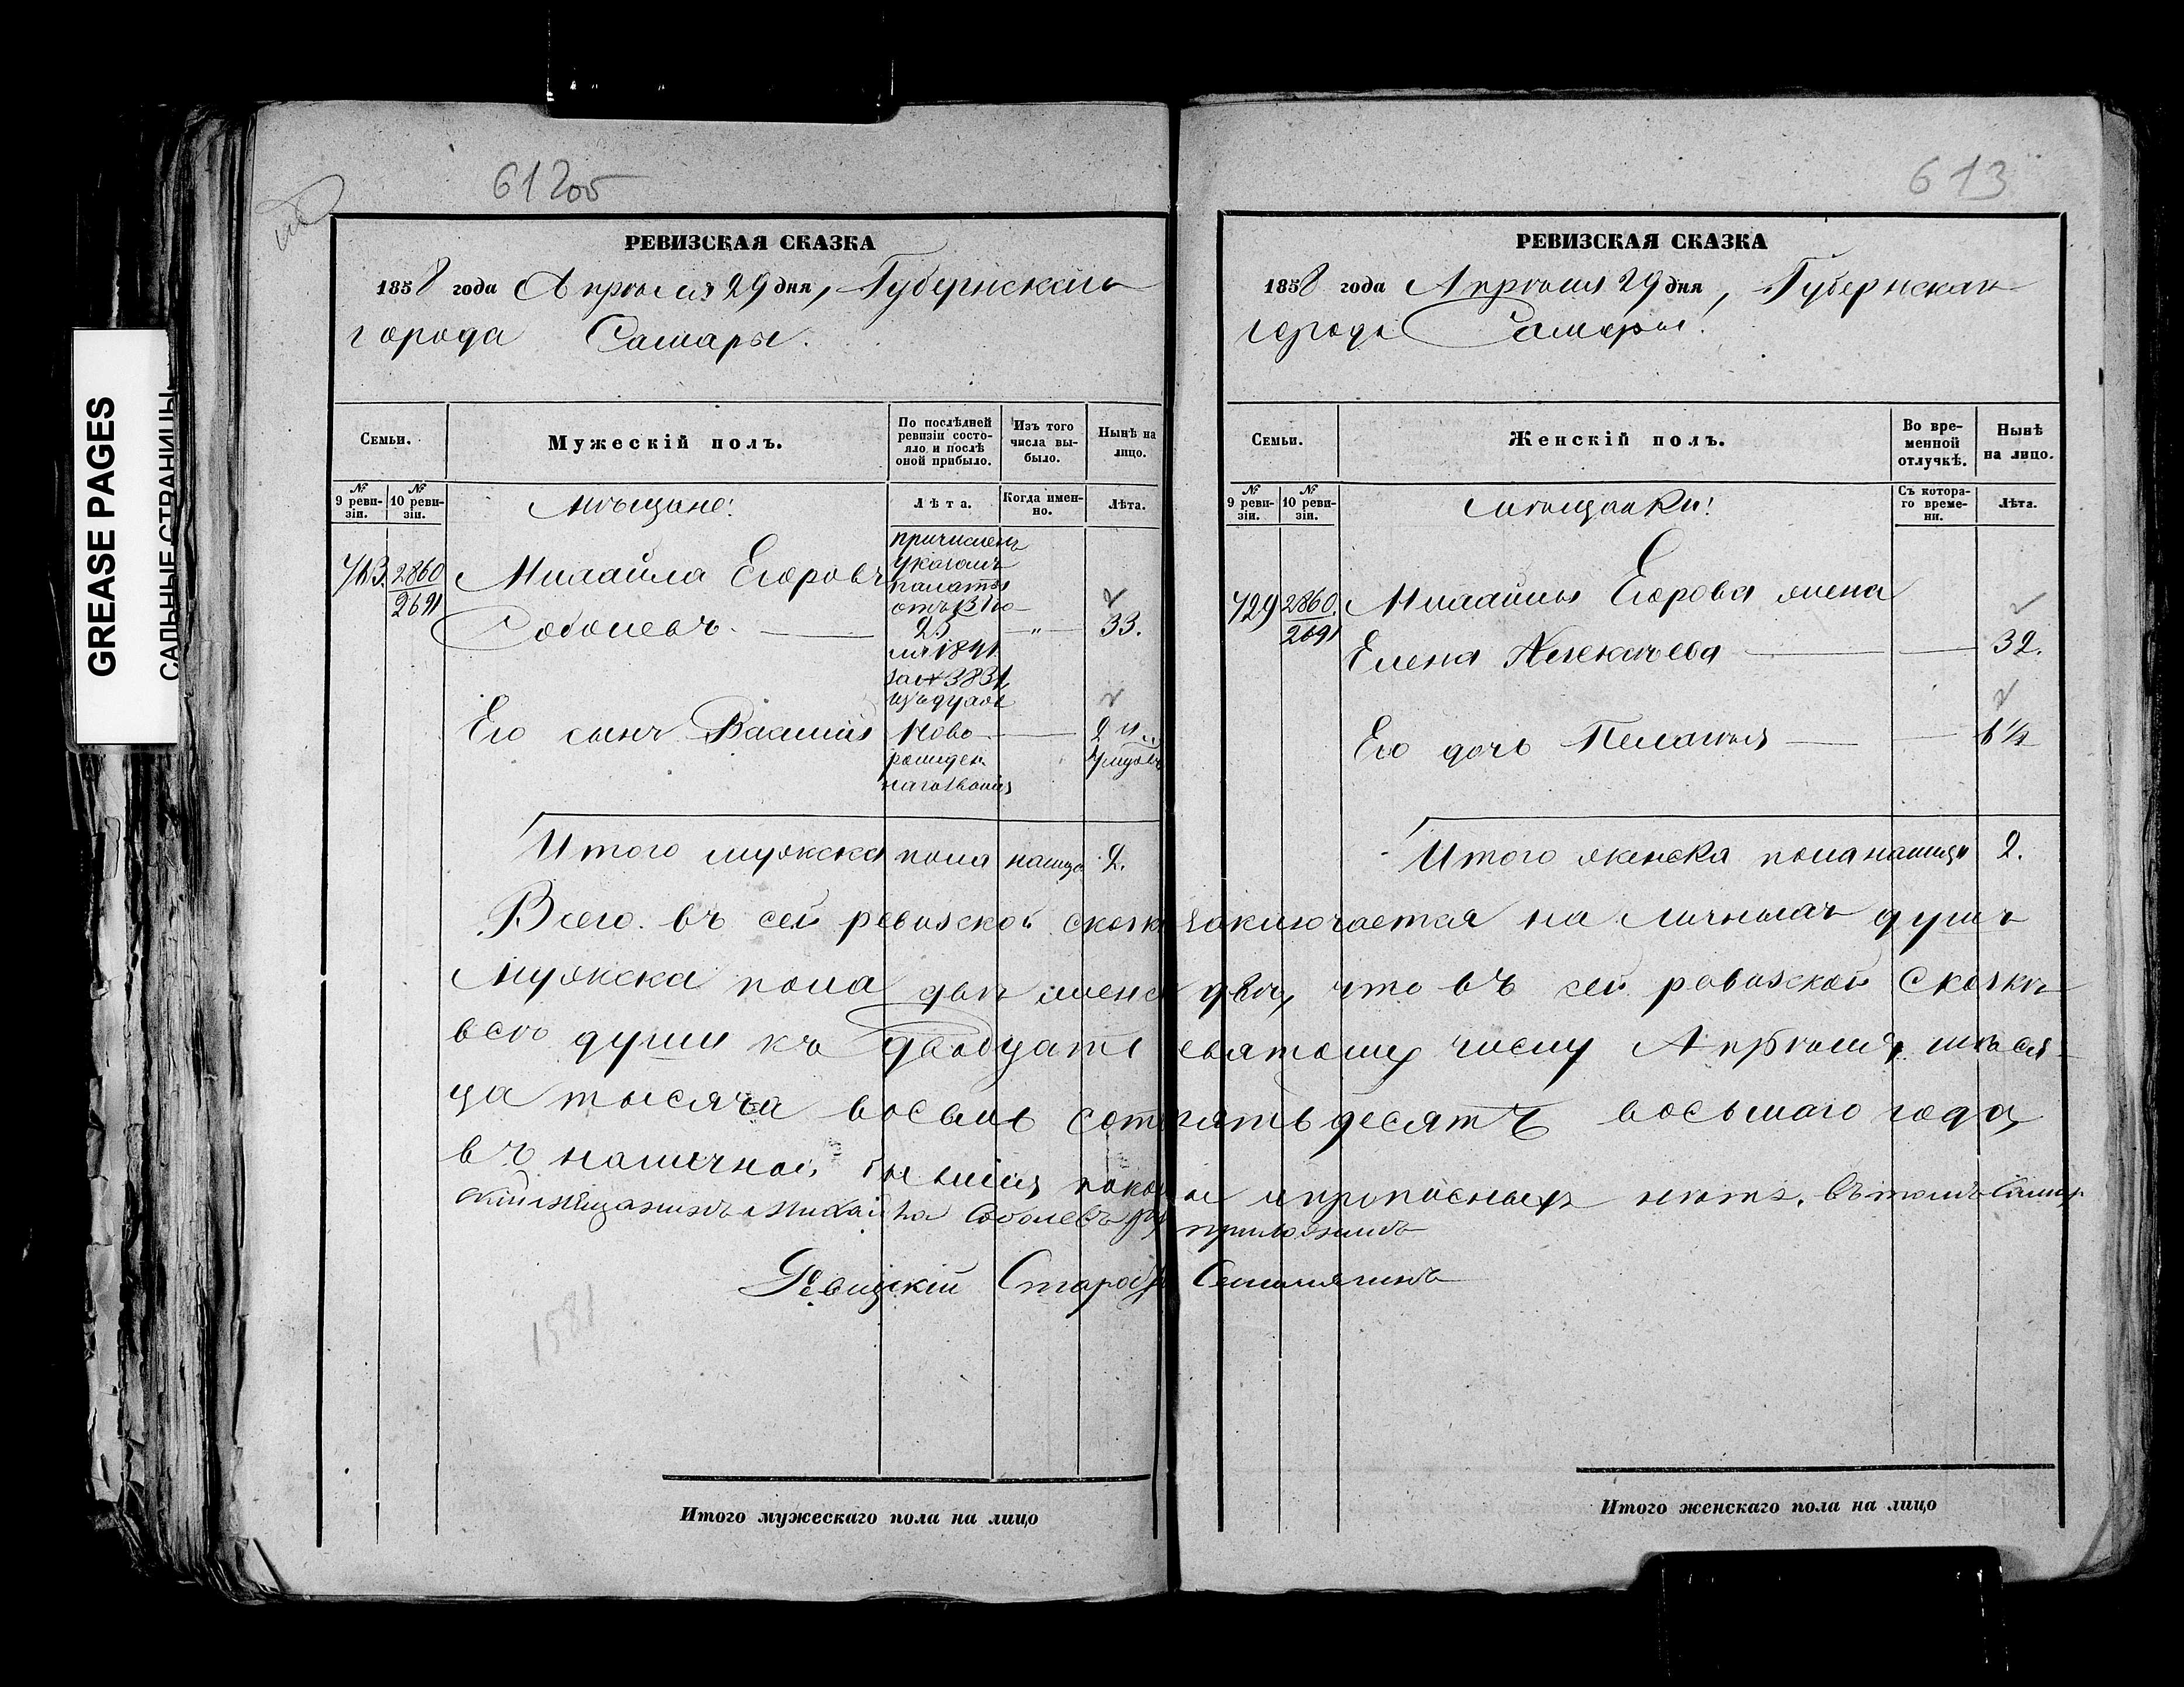 GREASE PAGES
САЛЬНЫЕ СТРАНИЦЫ
612об
РЕВИЗСКАЯ СКАЗКА
1858 года Апрѣля 29 дня, Губернскаго
города Самары.
Семьи.
Мужескій полъ.
По послѣдней ревизіи состояло и послѣ оной прибыло.
Изъ того числа выбыло.
Нынѣ на лицо.
№ 9 ревизіи.
№ 10 ревизіи.
Мѣщане:
Лѣта.
Когда именно.
Лѣта.
713. 2860
2691
Михайла Егоровъ
Соболевъ.
причисленъ
указомъ
палаты
отъ 13 Ію-
25
ля 1841
за № 3831
— " —
33.
Его сынъ Василій
Ново-
рожден
2 н.
Итого мужска пола налицо 2.
613
РЕВИЗСКАЯ СКАЗКА
1858 года Апрѣля 29 дня, Губернскаго
города Самары.
Семьи.
Женскій полъ.
Во временной отлучкѣ.
Нынѣ на лицо.
№ 9 ревизіи.
№ 10 ревизіи.
Мѣщанки:
Съ котораго времени.
Лѣта.
729 2860.
2691
Михайлы Егорова жена
Елена Алексѣева
32.
Его дочь Пелагѣя
1½
Итого женска пола налицо 2.
Всего въ сей ревизской сказкѣ заключается на личныхъ душъ
мужска пола двѣ женска двѣ, что въ сей ревизской сказкѣ
всѣ души къ двадцать девятому числу Апрѣля мѣся-
ца тысяча восемь сотъ пятьдесятъ восьмаго года
въ наличной бытности показаны и прописныхъ нѣтъ. Въ томъ Самар
скій мѣщанинъ Михайла Соболевъ приложилъ
Ревизскій Староста
1581
Итого мужескаго пола на лицо
Итого женскаго пола на лицо